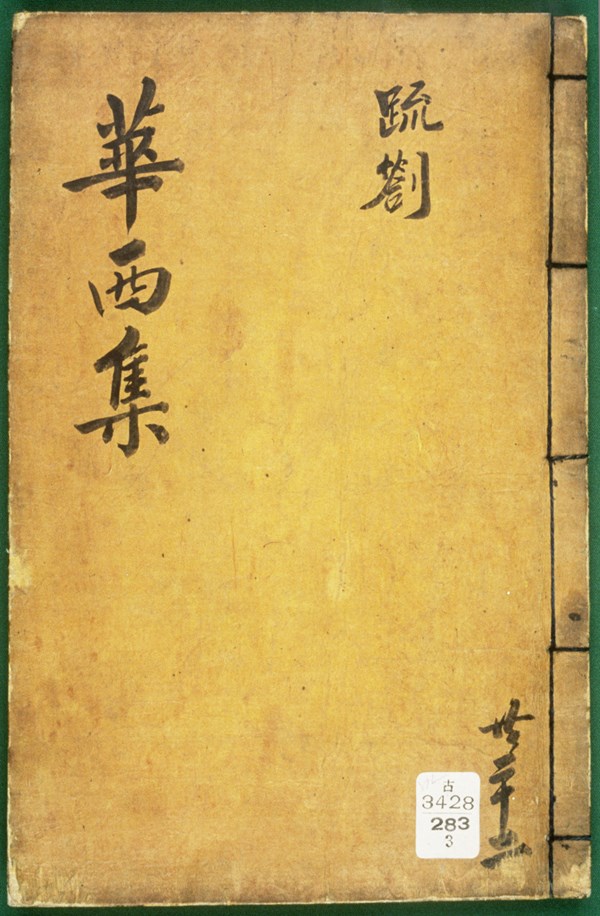 疏劄
共二十五
華西集
古
3428
283
3